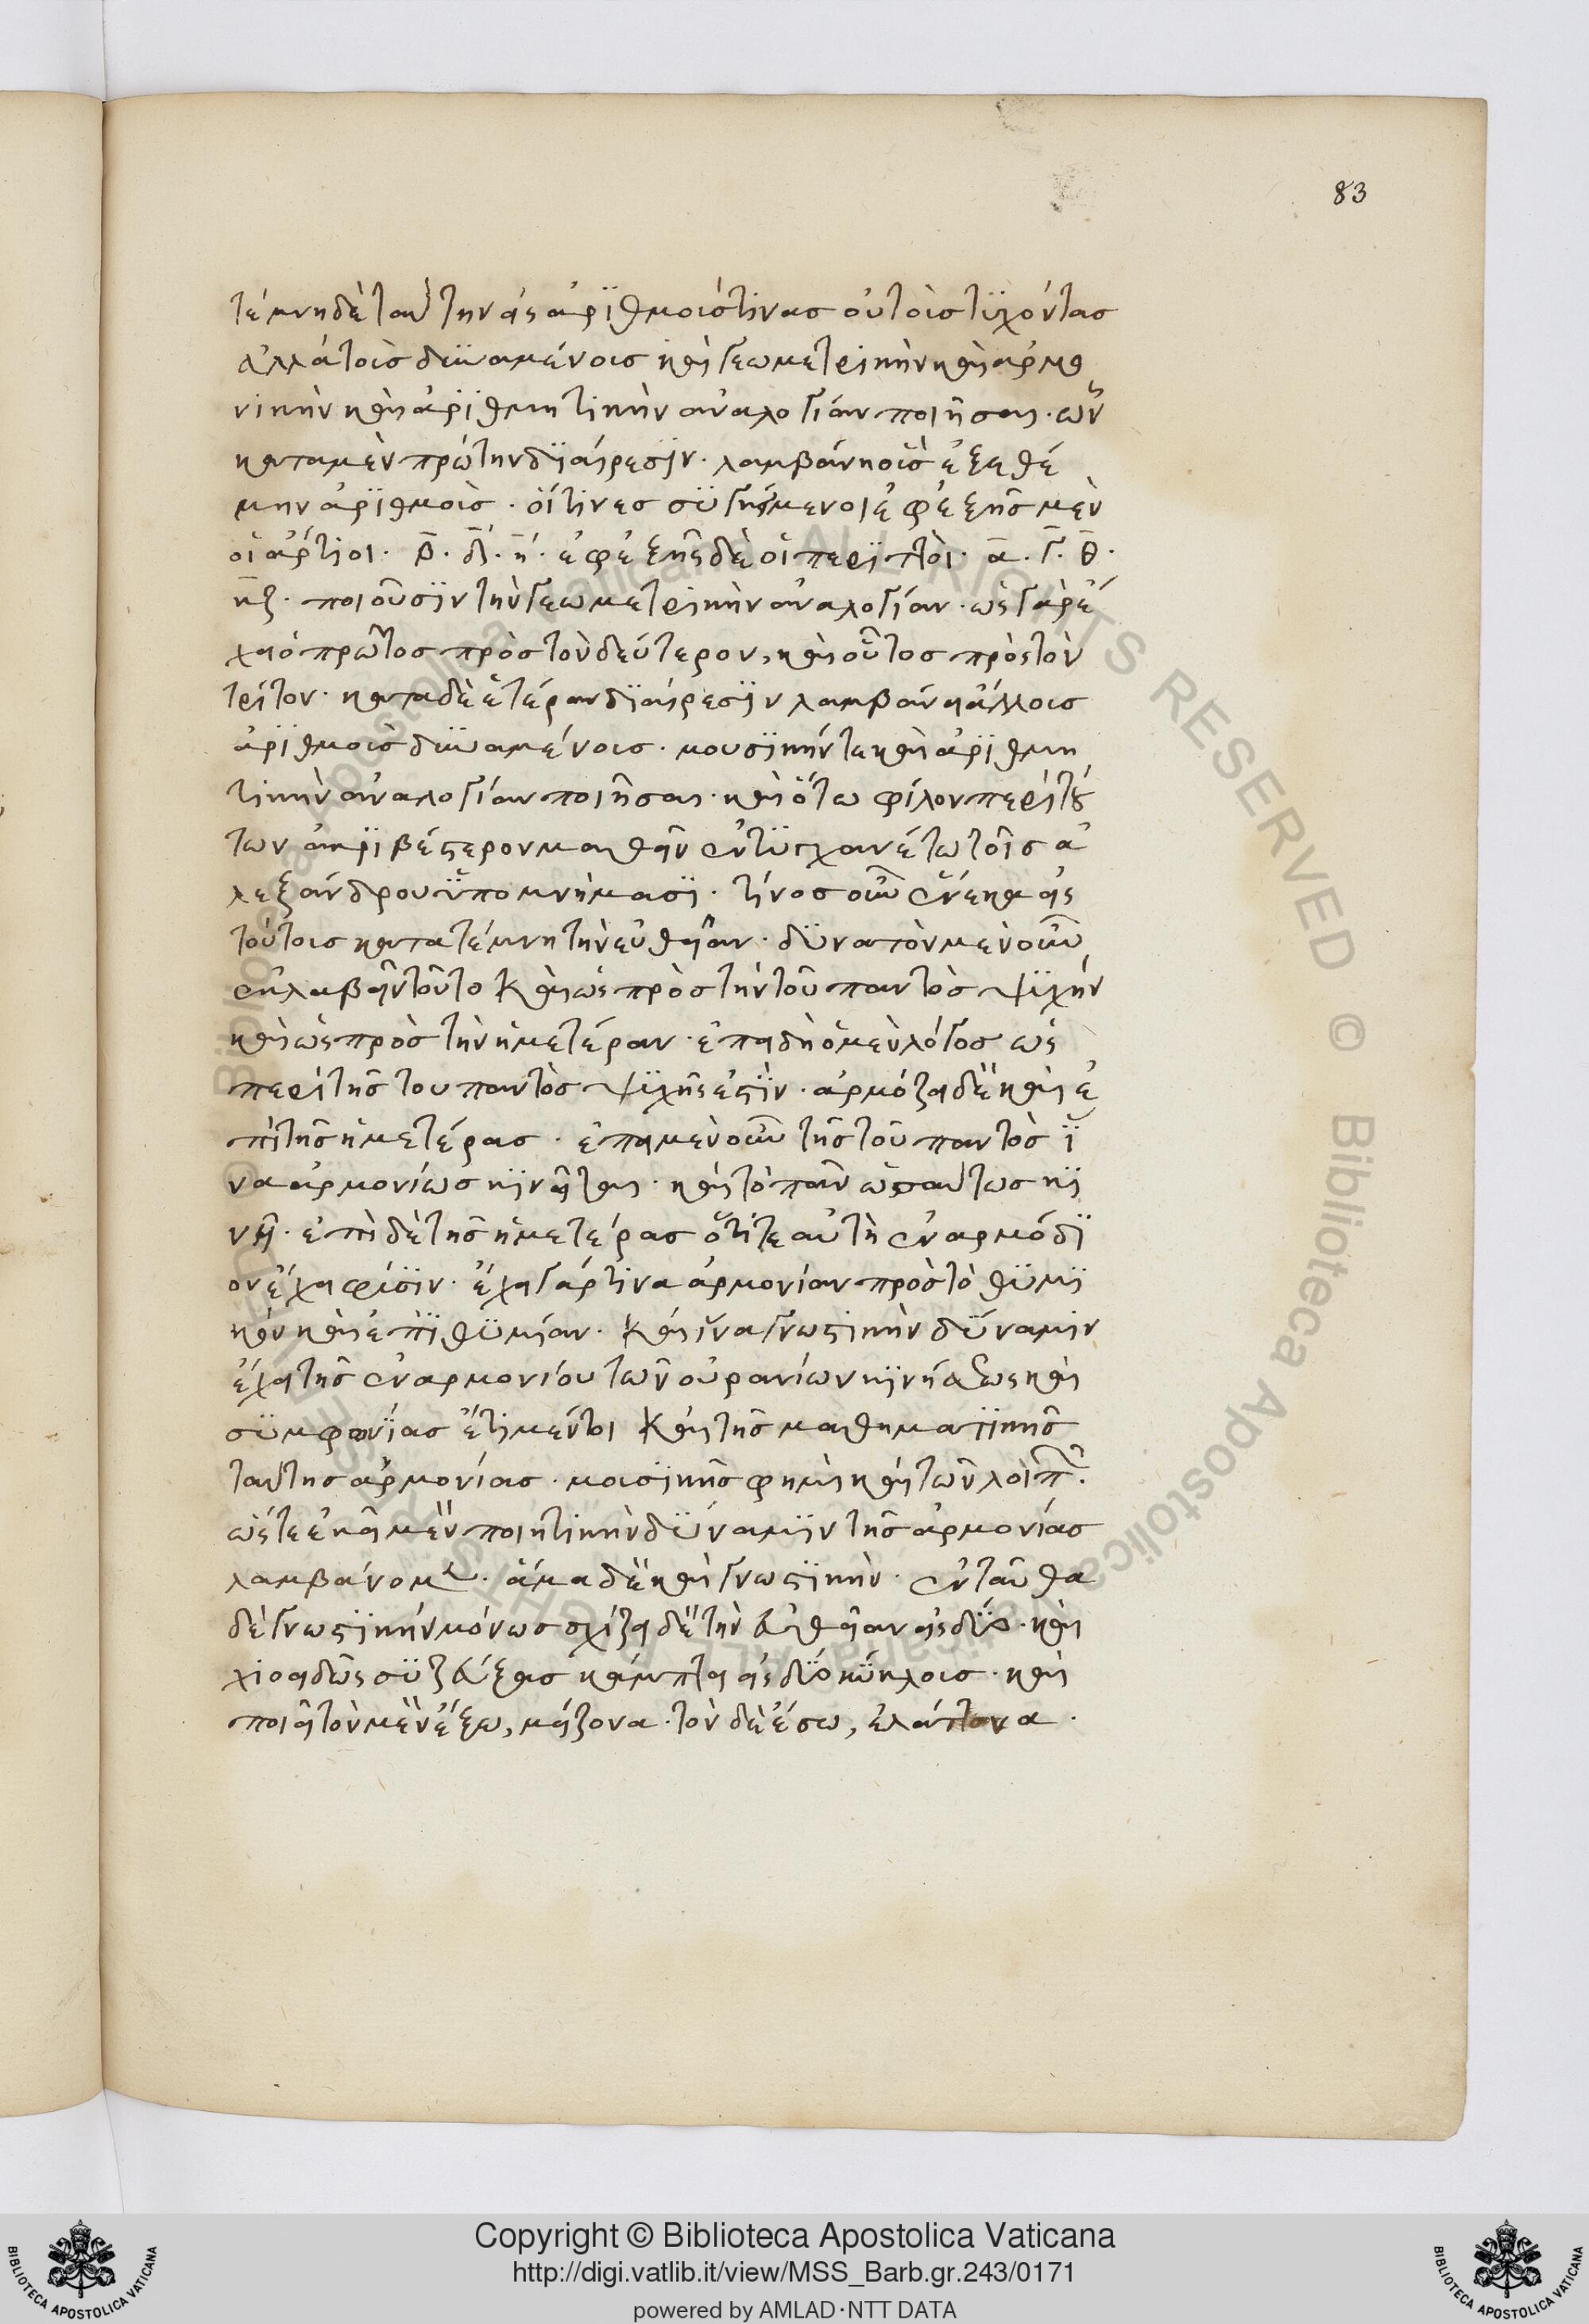 83
τέμνη δὲ ταύτην εἰς ἀρϊθμοίς τινας οὐ τοὶς τϋχόντας
ἀλλὰ τοὶς δϋναμένοις καὶ γεωμετρικὴν καὶ ἁρμο
νικὴν καὶ ἀρϊθμητικὴν ἀναλογίαν ποιῆσαι. ὧν
κατα μὲν πρώτην δϊαίρεσϊν. λαμβάνη οἳς ἐξεθέ
μην ἀρϊθμοὶς. οἵτινες σϋγκείμενοι ἐφεξῆς μὲν
οἱ ἄρτιοι. β. δ. η. ἐφεξῆς δὲ οἱ περϊττοὶ. α. γ. θ.
κζ. ποιοῦσϊν τὴν γεωμετρικὴν ἀναλογίαν. ὡς γὰρ ἔ
χει ὁ πρῶτος πρὸς τὸν δεύτερον, καὶ οὗτος πρὸς τὸν
τρίτον. κατα δὲ ἑτέραν δϊαίρεσϊν λαμβάνει ἄλλοις
ἀρϊθμοὶς δϋναμένοις. μουσϊκήν τε καὶ ἀρϊθμη
τικὴν ἀναλογίαν ποιῆσαι. καὶ ὅτω φίλον περὶ τού
των ἀκρϊβέστερον μαθεῖν ἐντϋγχανέτω τοῖς ἀ
λεξάνδρου ϋπομνήμασϊ. τίνος οὖν ἕνεκα εἰς
τούτοις κατατέμνη τὴν εὐθεῖαν. δϋνατὸν μὲν οὖν
ἐκλαβεῖν τοῦτο καὶ ὡς πρὸς τὴν τοῦ παντὸς ψϋχήν
καὶ ὡς πρὸς τὴν ἡμετέραν. ἐπειδὴ ὁ μὲν λόγος ὡς
περὶ τῆς του παντὸς ψϋχῆς ἐστϊν. ἁρμόζει δὲ καὶ ἐ
πὶ τῆς ἡμετέρας. ἐπει μὲν οὖν τῆς τοῦ παντὸς ἵ
να ἁρμονίως κϊνεῖται. καὶ τὸ πᾶν ὡσαύτως κϊ
νῆ. ἐπὶ δὲ τῆς ἡμετέρας ὅτι τε αὐτὴ ἐναρμόδϊ
ον ἔχει φύσϊν. ἔχει γάρ τινα ἁρμονίαν πρὸς τὸ θϋμϊ
κὸν καὶ ἐπϊθϋμίαν. καὶ ἵνα γνωστικὴν δϋναμιν
ἔχει τῆς ἐναρμονίου τῶν οὐρανίων κϊνήσεως καὶ
σϋμφωνϊας ἔτι μέντοι καὶ τῆς μαθηματϊκῆς
ταύτης ἁρμονίας. μοισϊκῆς φημὶ καὶ τῶν λοιπ.
ὥστε ἐκεῖ μὲν ποιητικὴν δϋναμϊν τῆς ἁρμονίας
λαμβάνομεν. ἅμα δὲ καὶ γνωστϊκὴν. ἐνταῦθα
δὲ γνωστϊκήν μόνως σχίζει δὲ τὴν εὐθεῖαν εἰς δϋο. καὶ
χιοειδῶς σϋζεύξας κάμπτει εἰς δϋο κϋκλοις. καὶ
ποιεῖ τὸν μὲν ἔξω, μείζονα. τὸν δὲ ἔσω, ἐλάττονα.
Copyright © Biblioteca Apostolica Vaticana
http://digi.vatlib.it/view/MSS_Barb.gr.243/0171
powered by AMLAD·NTT DATA